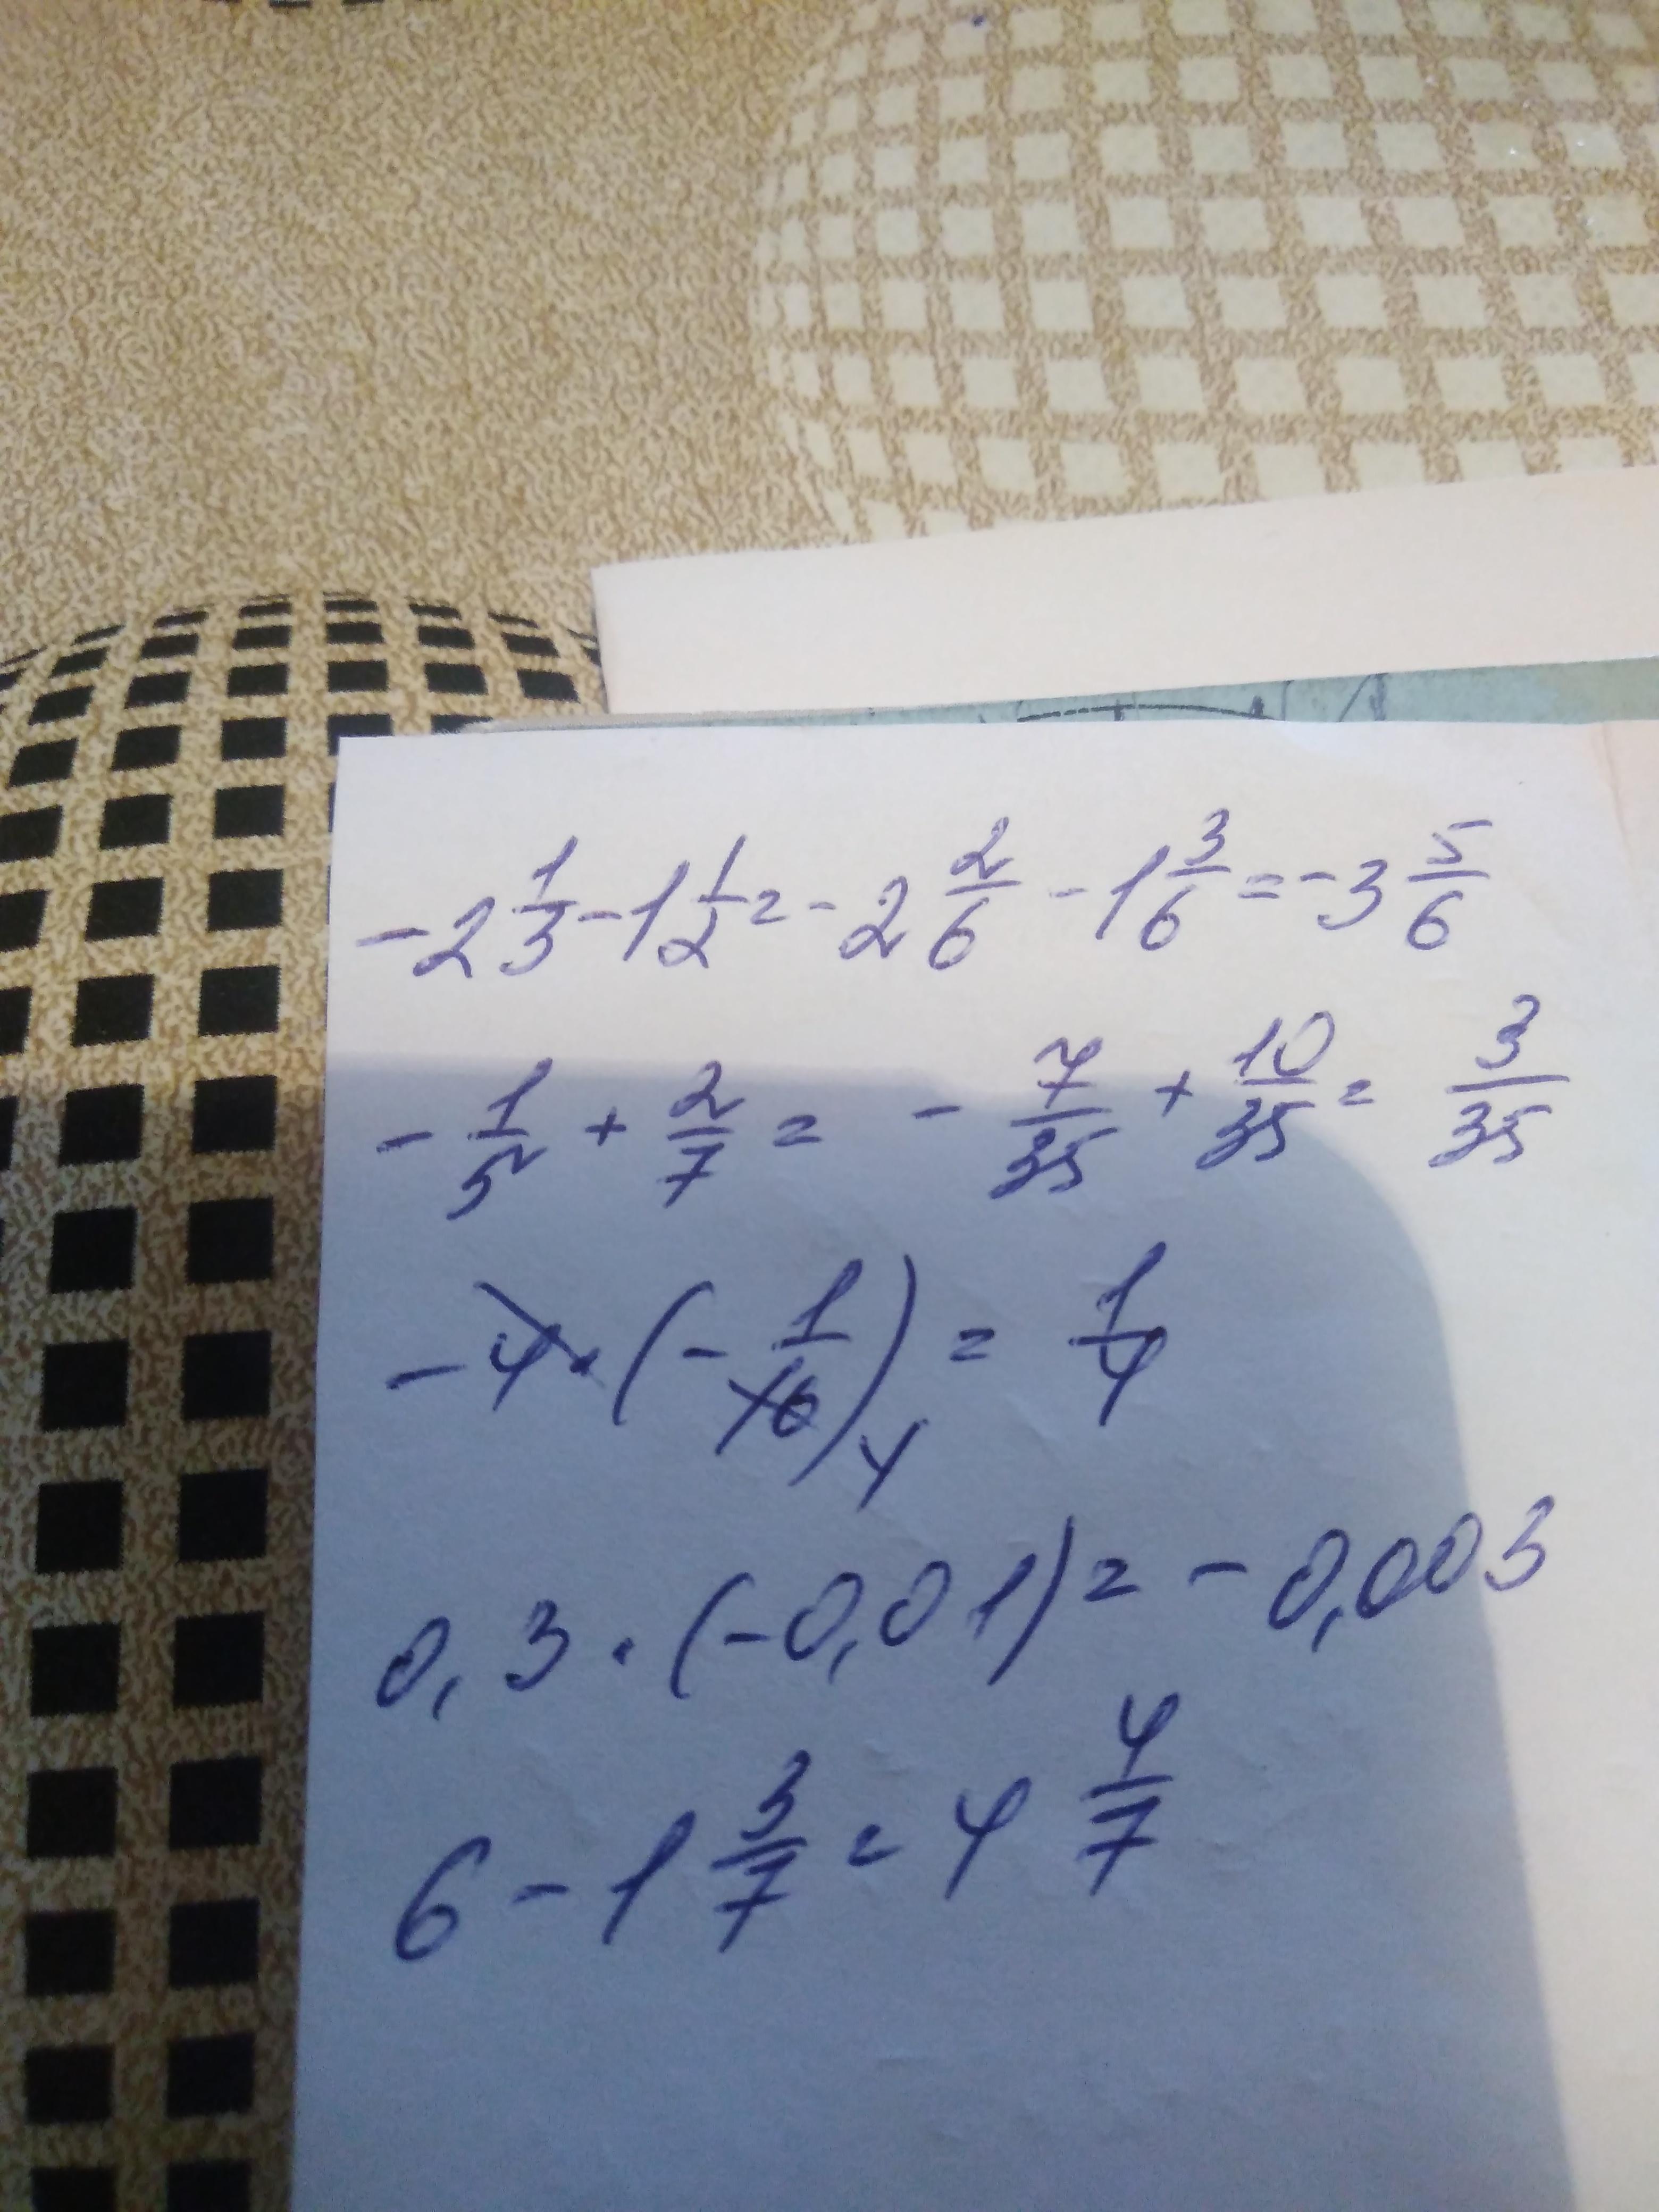 -2 1/3 - 1 1/2 = -2 2/6 - 1 3/6 = -3 5/6
- 1/5 + 2/7 = - 7/35 + 10/35 = 3/35
-4 · (- 1/16) 4 = 1/4
0,3 · (-0,01) = -0,003
6 - 1 3/7 = 4 4/7